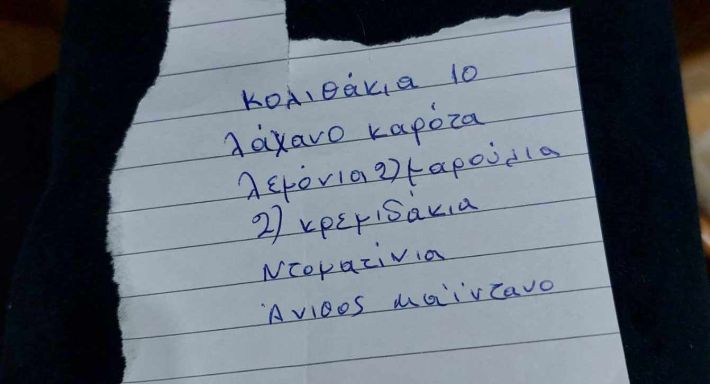 κολιθάκια 10
λάχανο καρότα
λεμόνια 2) μαρούλια
2) κρεμιδάκια
Ντοματίνια
Άνιθος μαϊντανο